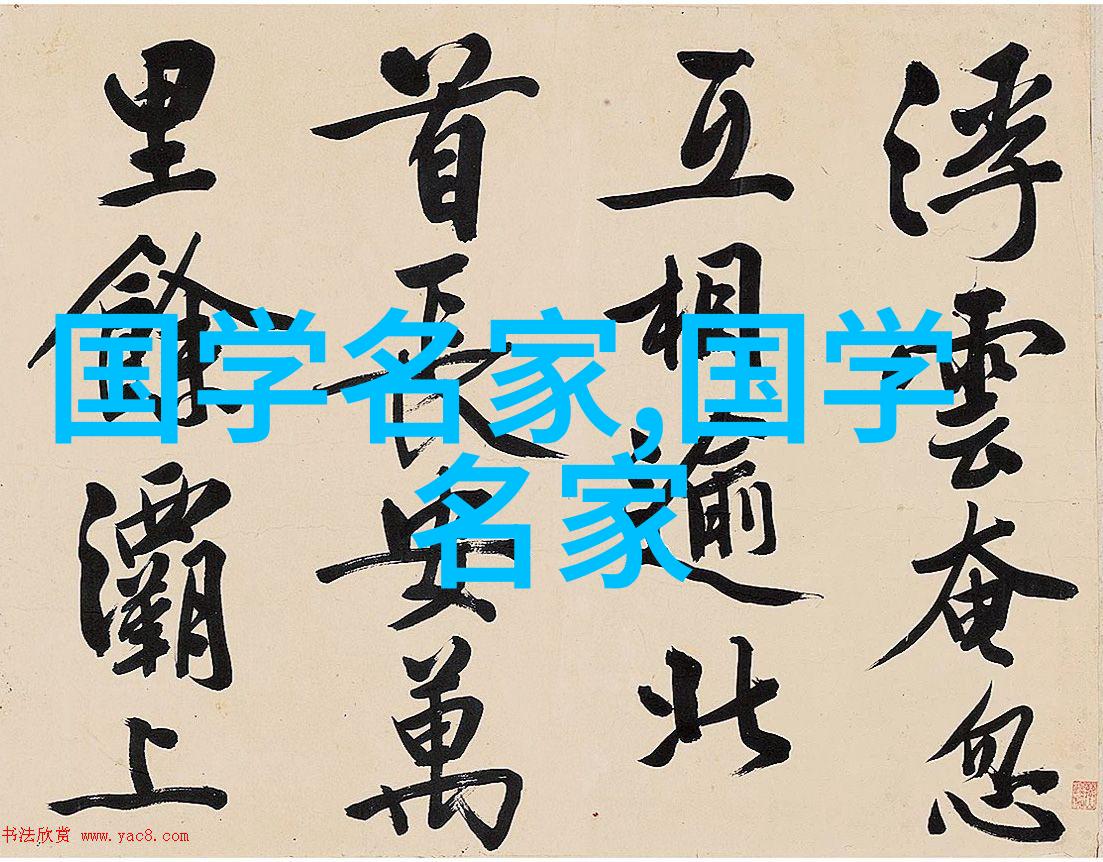 浮雲奄忽
互相逾北
首長安萬
里餘灞上
国学名家,国学
名家
书法欣赏 www.yac8.com